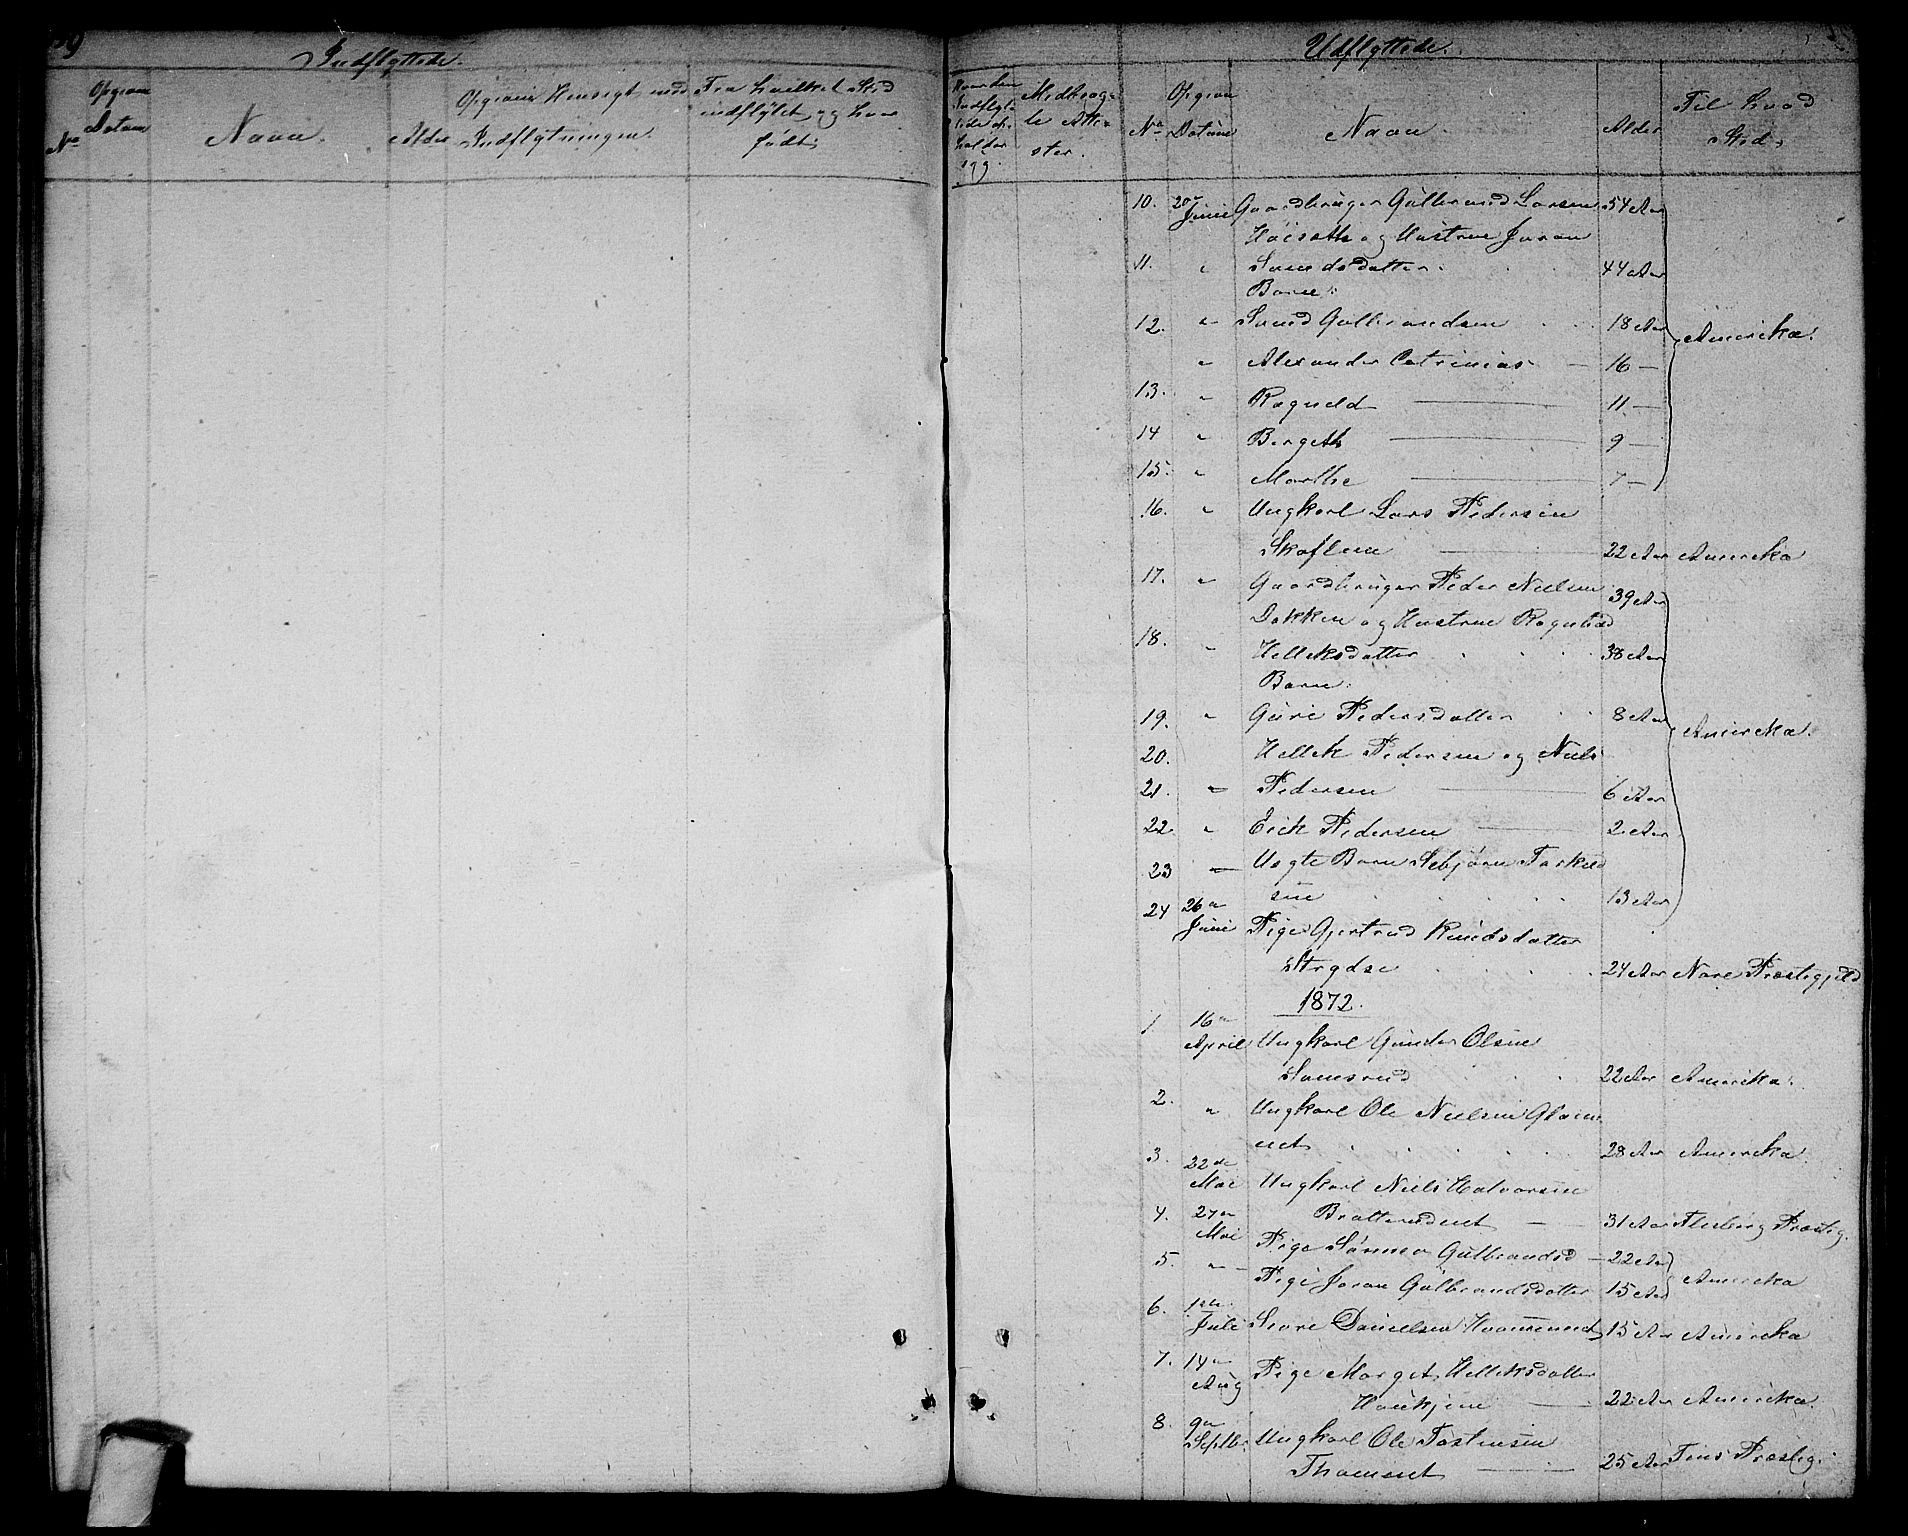 Indflyttede.
No
Opgivne Datum
Navn.
Alder
Opgiven Hensigt med
Indflytningen.
Fra hvilket Sted
indflyttet, og hvor
født.
Medbrag-
te Atte-
ster.
Udflyttede.
No
Opgiven Datum
Navn.
Alder
Til hvad
Sted.
10. 20de Juni Gaardbruger Gulbrand Larsen 54 Aar
og Hustrue Joran
11. " Svendsdatter. 44 Aar
Børn:
12. " Svend Gulbrandsen 18 Aar Amerika.
" Alexander Catrinius — 16 —
13. " Ragnild — 11 —
14 " Bergeth — 9 —
15. " Marthe — 7 —
16. " Ungkarl Lars Pedersen
Skaflem — 22 Aar Amerika
17. " Gaardbruger Peder Nielsen 39 Aar
Dokken og Hustrue Ragnild
18. " Helleksdatter 38 Aar
Børn:
19. " Guri Pedersdatter 8 Aar Amerika.
20. Hellek Pedersen og Niels
21. " Pedersen — 6 Aar
22. " Erik Pedersen — 2 Aar
23 " Uegte Barn Sebjørn Torkild
sen 13 Aar
24 26de Juni Pige Gjertrud Knudsdatter
24 Aar Nore Præstegjeld
1872.
1 16de April Ungkarl Gunder Olsen
22 Aar Amerika.
2. " Ungkarl Ole Nielsen
28 Aar Amerika.
3. 22de Mai Ungkarl Niels Halvorsen
Bratterudeiet — 31 Aar Flesberg Præsteg.
4. 27de Mai Pige Gulbrandsd — 22 Aar
5. " Pige Joran Gulbrandsdatter 15 Aar Amerika
6. 1ste Juli Sivre Danielsen 15 Aar Amerika
7. 14de Aug Pige Marget Helleksdatter
22 Aar Amerika.
8. 9de Septbr. Ungkarl Ole Tostensen
25 Aar Præsteg.